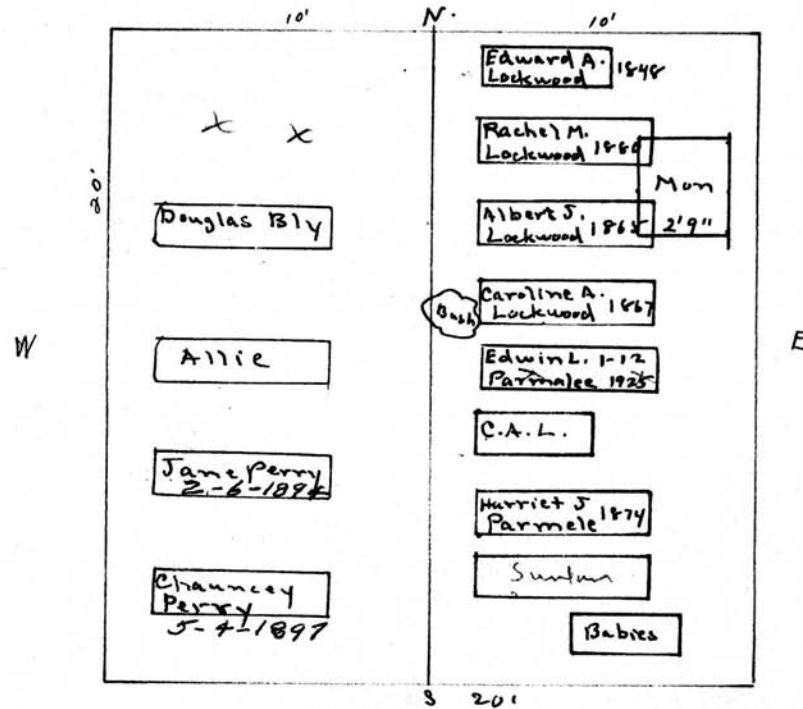 10' N. 10'
20'
W
E
x x
Douglas Bly
Allie
Jane Perry
Chauncey
Perry
5-4-1897
Edward A.
Lockwood 1848
Rachel M.
Lockwood
Mon
2'9"
Albert J.
Lockwood
Bush
Caroline A.
Lockwood 1867
Edwin L. 1-12
Parmalee 1925
C.A.L.
Harriet J
Parmele 1874
Babies
S 20'